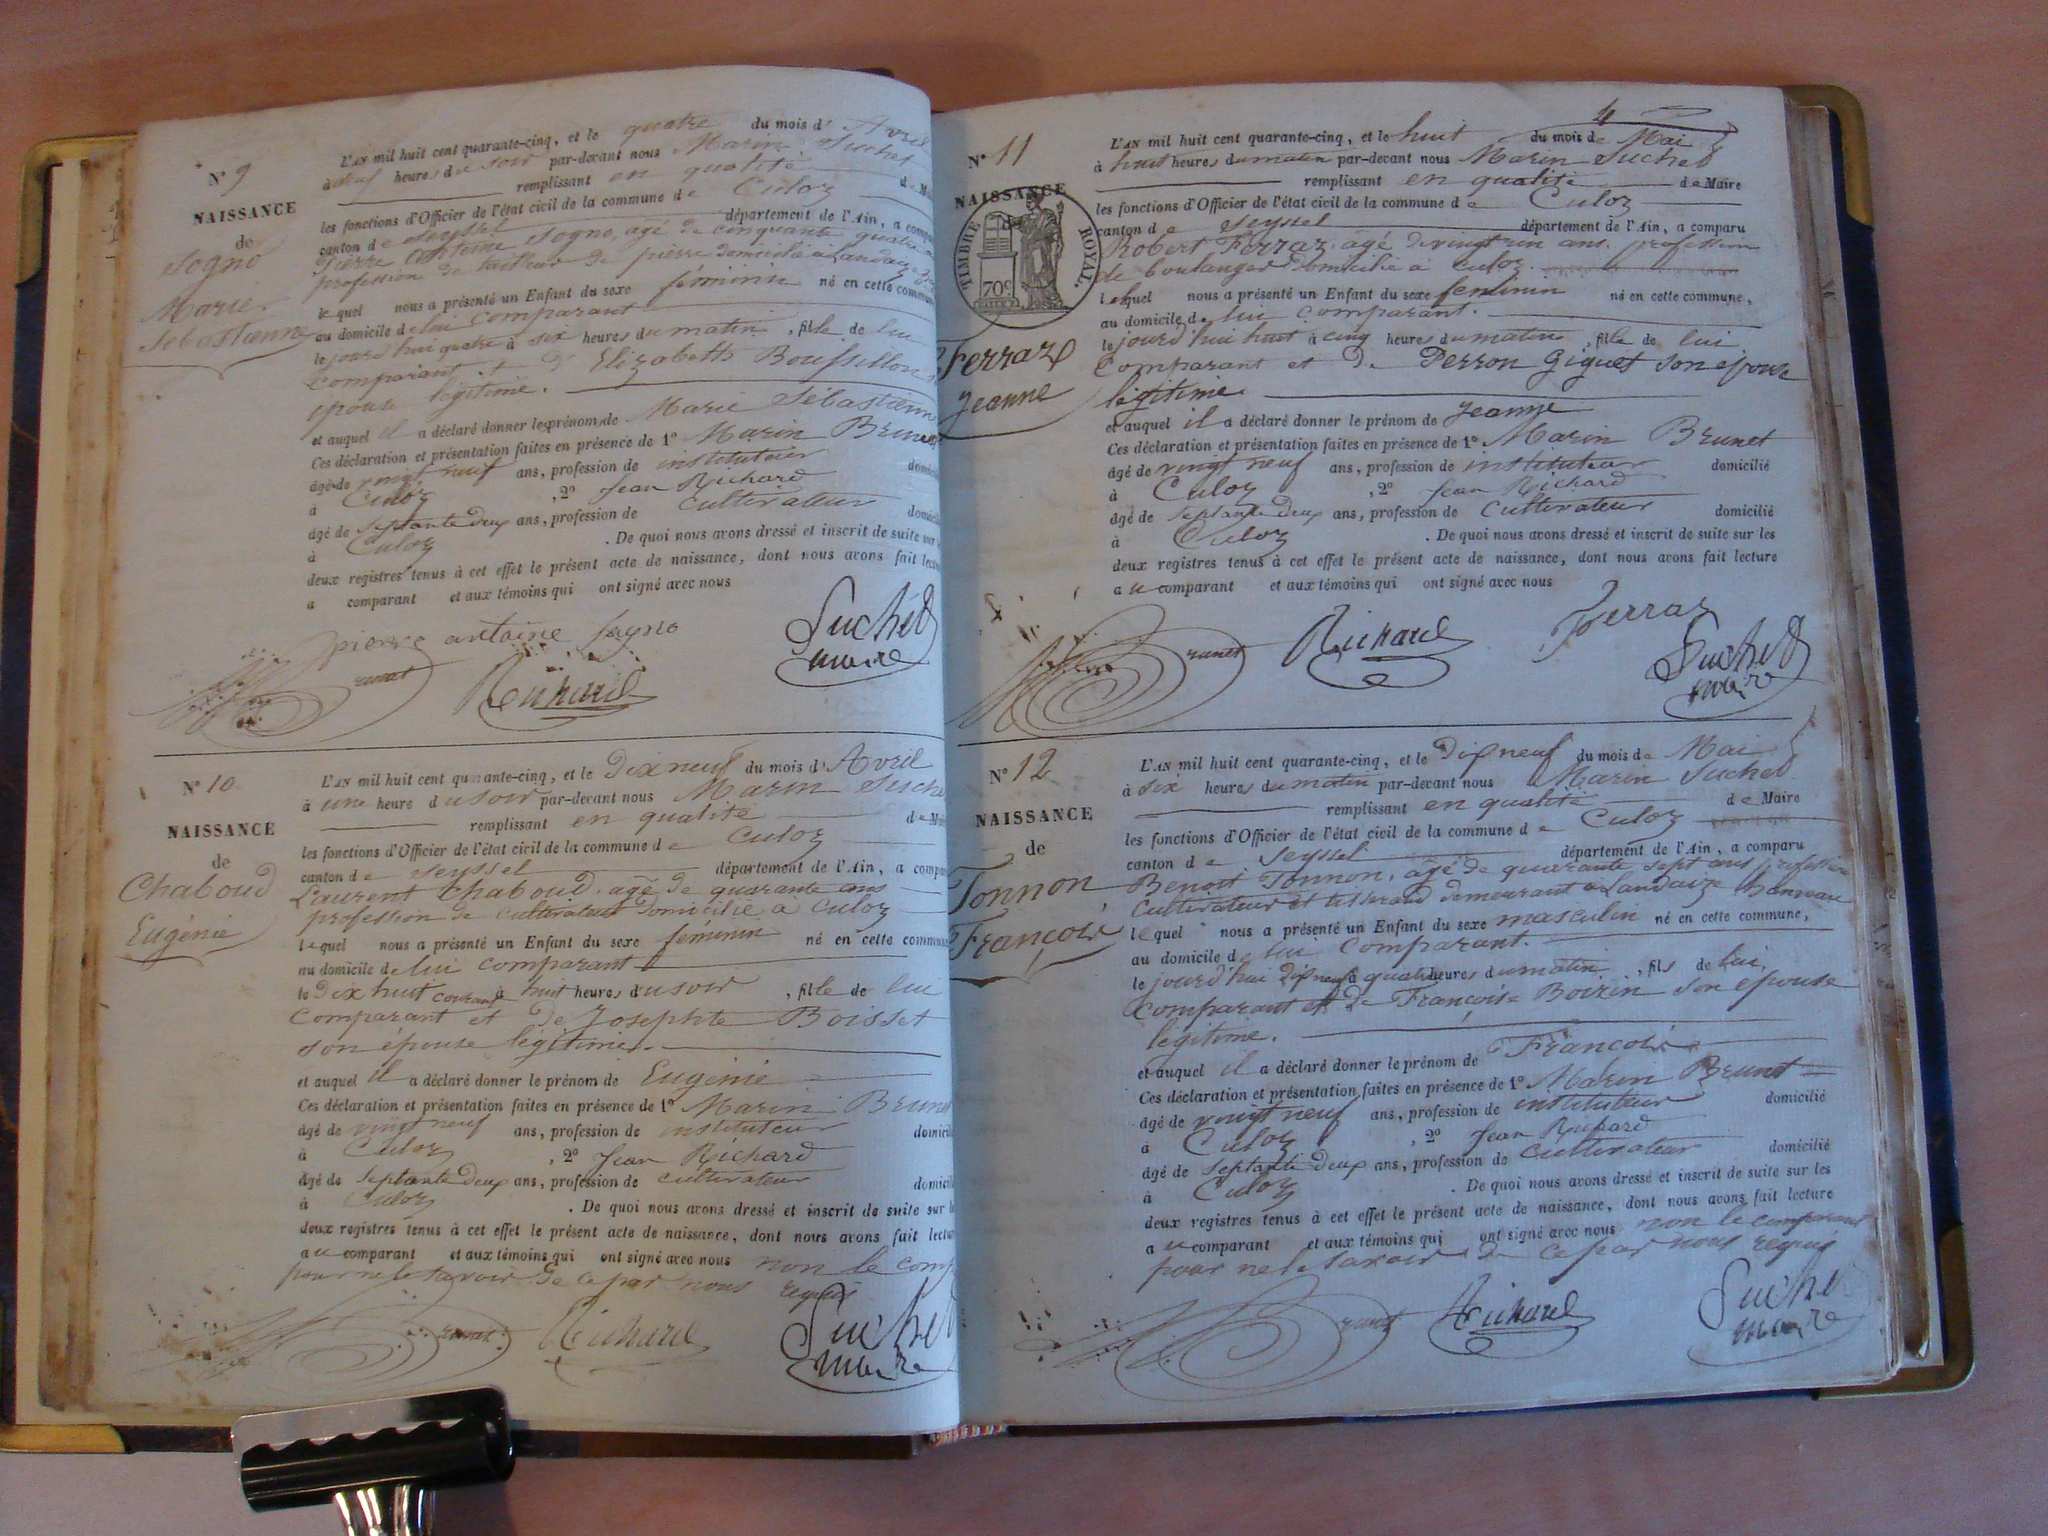 N° 9
NAISSANCE
de
Sogno
Marie
Sebastienne
L'AN mil huit cent quarante-cinq, et le quatre du mois d'Avril
à neuf heures du soir par-devant nous Marin Suchet
remplissant en qualité de Mai
les fonctions d'Officier de l'état civil de la commune de Culoz
canton de Seyssel département de l'Ain, a compa
pierre antoine Sogno, agé de cinquante quatre
profession de tailleur de pierre domicilié a Landaize
lequel nous a présenté un Enfant du sexe féminin né en cette commune
au domicile de lui comparant
le jourd'hui quatre à six heures du matin, fille de lui
Comparant et d'Elizabeth Boussillon
épouse légitime.
et auquel il a déclaré donner les prénom de Marie Sébastienne
Ces déclaration et présentation faites en présence de 1° Marin Brunet
âgé de vingt neuf ans, profession de instituteur domici
à Culoz, 2° Jean Richard
âgé de septante deux ans, profession de cultivateur domici
à Culoz. De quoi nous avons dressé et inscrit de suite sur
deux registres tenus à cet effet le présent acte de naissance, dont nous avons fait lectu
a comparant et aux témoins qui ont signé avec nous
pierre antoine Sogno
Suchet
maire
Brunet
Richard
N° 10
NAISSANCE
de
Chaboud
Eugénie
L'AN mil huit cent quarante-cinq, et le Dix neuf du mois d'Avril
à une heure du soir par-devant nous Marin Suche
remplissant en qualité de Mai
les fonctions d'Officier de l'état civil de la commune de Culoz
canton de Seyssel département de l'Ain, a compa
Laurent Chaboud, agé de quarante ans
profession de cultivateur domicilié à Culoz
lequel nous a présenté un Enfant du sexe feminin né en cette commune
au domicile de lui comparant
le Dix huit courant à huit heures du soir, fille de lui
Comparant et de Josephte Boisset
son épouse légitime.
et auquel il a déclaré donner le prénom de Eugénie
Ces déclaration et présentation faites en présence de 1° Marin Brun
âgé de vingt neuf ans, profession de instituteur domicil
à Culoz, 2° Jean Richard
âgé de septante deux ans, profession de cultivateur domicil
à Culoz. De quoi nous avons dressé et inscrit de suite sur l
deux registres tenus à cet effet le présent acte de naissance, dont nous avons fait lectur
au comparant et aux témoins qui ont signé avec nous non le comp
pour ne le savoir de ce par nous requis
Brunet
Richard
Suchet
maire
4
N° 11
NAISSANCE
TIMBRE ROYAL
70c
Ferraz
Jeanne
L'AN mil huit cent quarante-cinq, et le huit du mois de Mai
à huit heures du matin par-devant nous Marin Suchet
remplissant en qualité de Maire
les fonctions d'Officier de l'état civil de la commune de Culoz
canton de Seyssel département de l'Ain, a comparu
Robert Ferraz, agé de vingt un ans. profession
de boulanger domicilié à Culoz.
lequel nous a présenté un Enfant du sexe feminin né en cette commune,
au domicile de lui comparant.
le jourd'hui huit à cinq heures du matin, fille de lui
Comparant et de Perron Giguet son épouse
légitime.
et auquel il a déclaré donner le prénom de Jeanne
Ces déclaration et présentation faites en présence de 1° Marin Brunet
âgé de vingt neuf ans, profession de instituteur domicilié
à Culoz, 2° Jean Richard
âgé de septante deux ans, profession de cultivateur domicilié
à Culoz. De quoi nous avons dressé et inscrit de suite sur les
deux registres tenus à cet effet le présent acte de naissance, dont nous avons fait lecture
au comparant et aux témoins qui ont signé avec nous
Brunet
Richard
Ferraz
Suchet
maire
N° 12
NAISSANCE
de
Tonnon
François
L'AN mil huit cent quarante-cinq, et le Dix neuf du mois de Mai
à six heures du matin par-devant nous Marin Suchet
remplissant en qualité de Maire
les fonctions d'Officier de l'état civil de la commune de Culoz
canton de Seyssel département de l'Ain, a comparu
Benoit Tonnon, agé de quarante sept ans profession
Cultivateur et tisserand demeurant a Landaize hameau
lequel nous a présenté un Enfant du sexe masculin né en cette commune,
au domicile de lui comparant.
le jourd'hui Dix neuf à quatre heures du matin, fils de lui
comparant et de Françoise Boizin son épouse
légitime.
et auquel il a déclaré donner le prénom de François
Ces déclaration et présentation faites en présence de 1° Marin Brunet
âgé de vingt neuf ans, profession de instituteur domicilié
à Culoz, 2° Jean Richard
âgé de septante deux ans, profession de cultivateur domicilié
à Culoz. De quoi nous avons dressé et inscrit de suite sur les
deux registres tenus à cet effet le présent acte de naissance, dont nous avons fait lecture
au comparant et aux témoins qui ont signé avec nous non le comparant
pour ne le savoir de ce par nous requis
Brunet
Richard
Suchet
maire